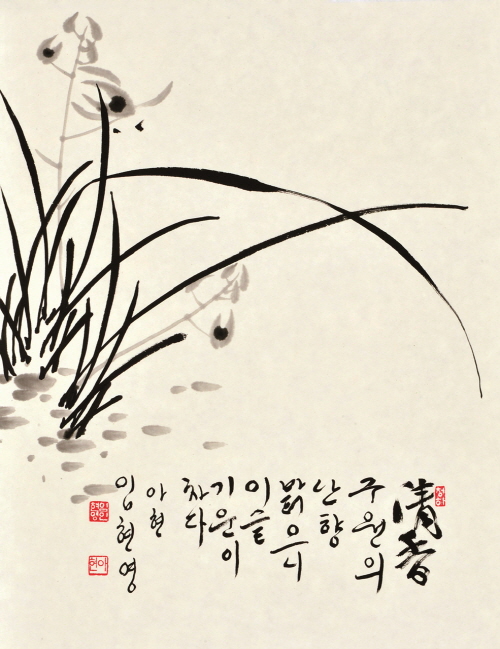 清香
구원의
난향
밝으니
이슬
기운이
차다
아현
임현영